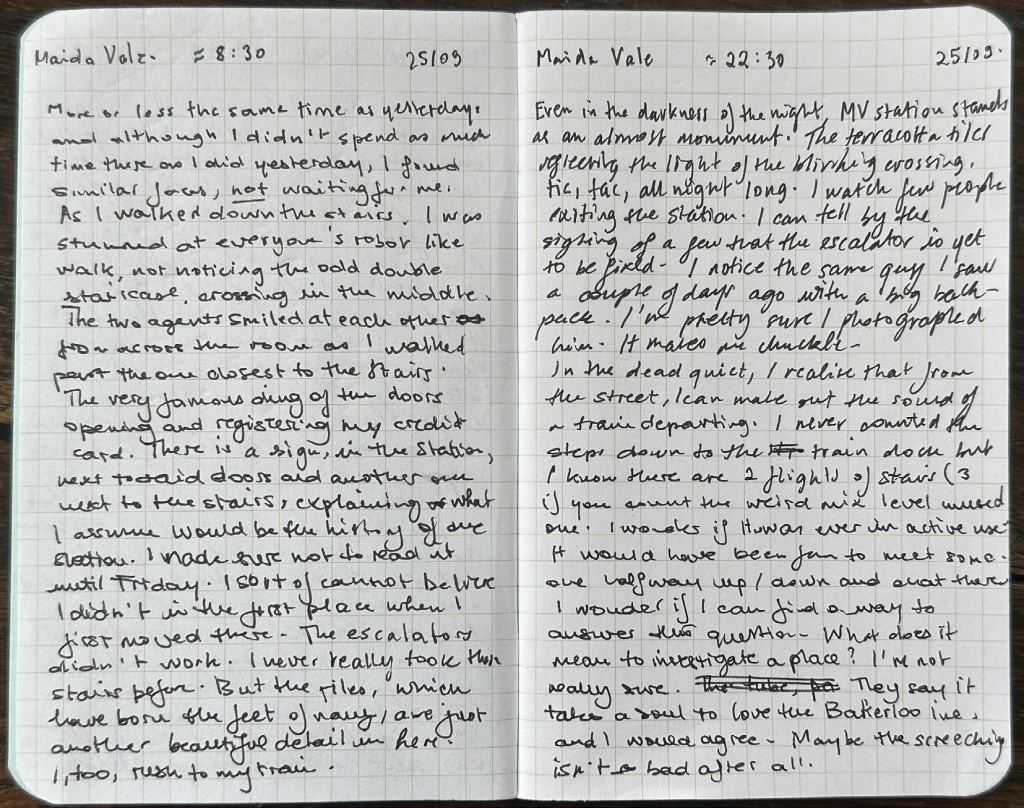 Maida Vale. ≈ 8:30 25/09
More or less the same time as yesterday,
and although I didn't spend as much
time there as I did yesterday, I found
similar faces, not waiting for me.
As I walked down the stairs, I was
stunned at everyone's robot like
walk, not noticing the odd double
staircase, crossing in the middle.
The two agents smiled at each other
from across the room as I walked
past the one closest to the stairs.
The very famous ding of the doors
opening and registering my credit
card. There is a sign, in the station,
next to said doors and another one
next to the stairs, explaining what
I assume would be the history of the
station. I made sure not to read it
until Friday. I sort of cannot belive
I didn't in the first place when I
first moved there - The escalators
didn't work. I never really took these
stairs before. But the tiles, which
have born the feet of many, are just
another beautiful detail in here.
I, too, rush to my train.
Maida Vale ≈ 22:30 25/09.
Even in the darkness of the night, MV station stands
as an almost monument. The terracotta tiles
reflecting the light of the blinking crossing.
tic, tac, all night long. I watch few people
exiting the station. I can tell by the
sighing of a few that the escalator is yet
to be fixed - I notice the same guy I saw
a couple of days ago with a big back-
pack. I'm pretty sure I photographed
him. It makes me chuckle -
In the dead quiet, I realise that from
the street, I can make out the sound of
a train departing. I never counted the
steps down to the train dock but
I know there are 2 flights of stairs (3
if you count the weird mix level unused
one. I wonder if it was ever in active use
It would have been fun to meet some-
one halfway up / down and chat there
I wonder if I can find a way to
answer this question - What does it
mean to investigate a place? I'm not
really sure. They say it
takes a soul to love the Bakerloo line,
and I would agree - Maybe the screeching
isn't so bad after all.